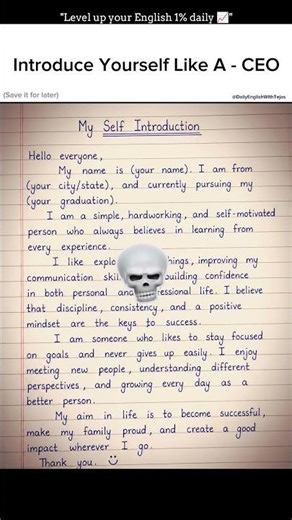 "Level up your English 1% daily 📈"
Introduce Yourself Like A - CEO
(Save it for later)
@DailyEnglishWithTejas
My Self Introduction
Hello everyone,
My name is (your name). I am from
(your city/state), and currently pursuing my
(your graduation).
I am a simple, hardworking, and self-motivated
person who always believes in learning from
every experience.
I like explo hings, improving my
communication skil uilding confidence
in both personal an essional life. I believe
that discipline, consistency, and a positive
mindset are the keys to success.
I am someone who likes to stay focused
on goals and never gives up easily. I enjoy
meeting new people, understanding different
perspectives, and growing every day as a
better person.
My aim in life is to become successful,
make my family proud, and create a good
impact wherever I go.
Thank you. ☺